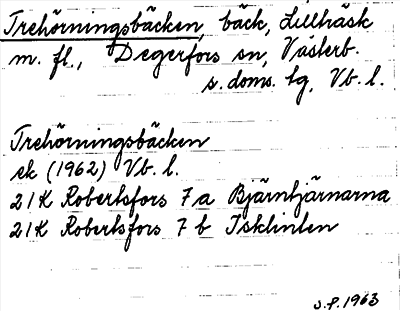 Trehörningsbäcken, bäck, Lillträsk
m. fl., Degerfors sn, Västerb.
s. doms. tg, Vb. l.
Trehörningsbäcken
ek (1962) Vb. l.
21K Robertsfors 7a Bjärntjärnarna
21K Robertsfors 7 b Isklinten
S.P. 1963